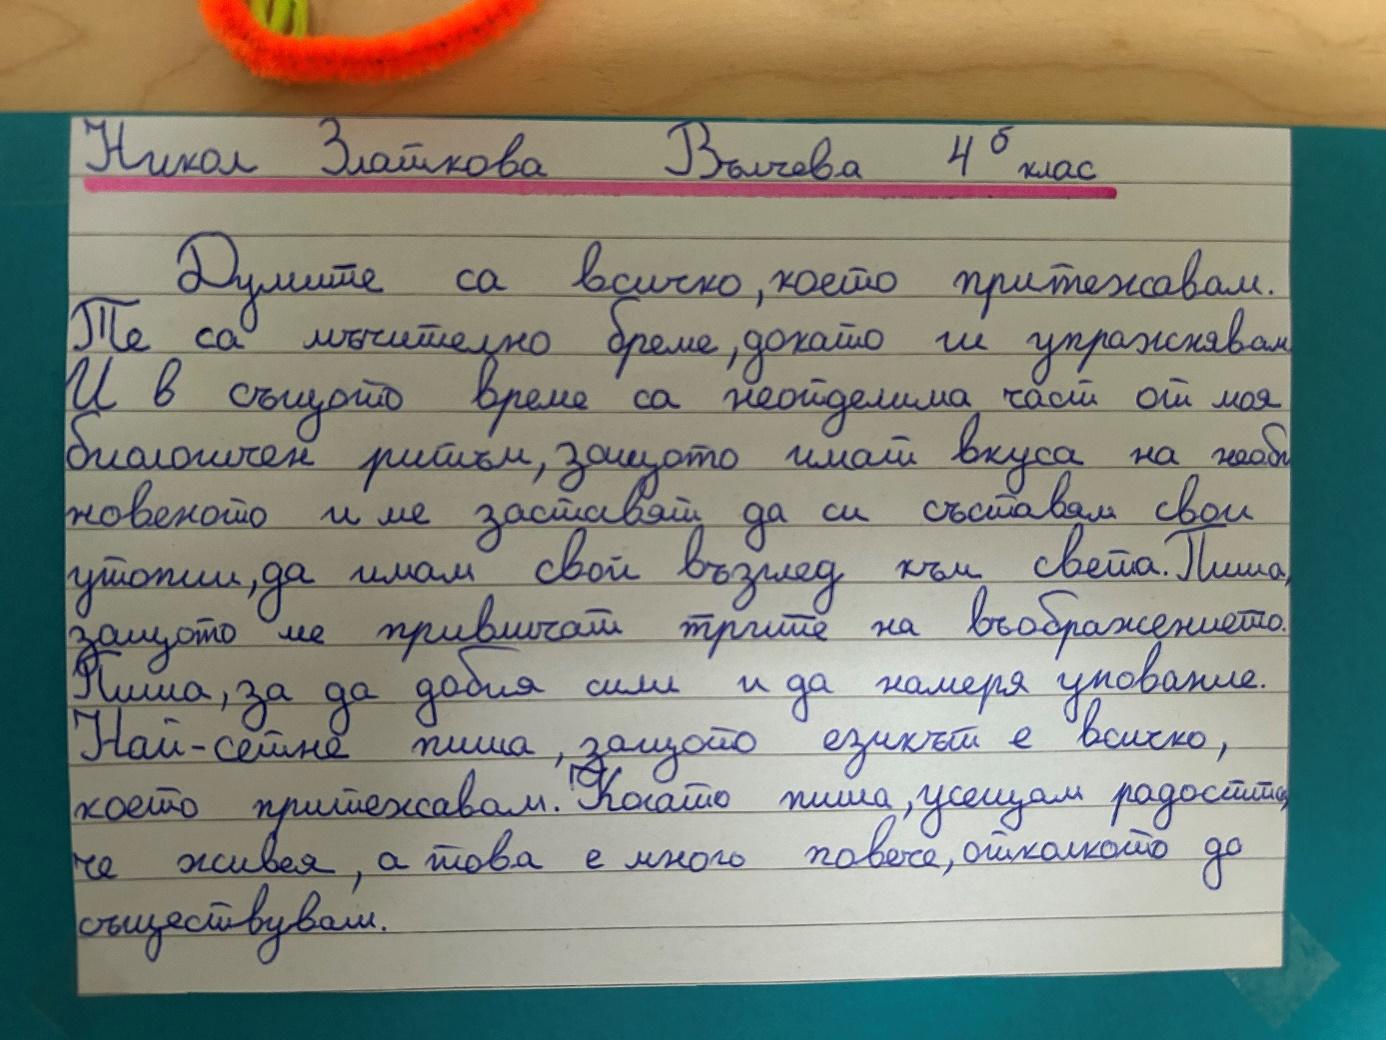 Никол Златкова Вълчева 4б клас
Думите са всичко, което притежавам.
Те са мъчително бреме, докато ги упражнявам
И в същото време са неотделима част от моя
биологичен ритъм, защото имат вкуса на необи
новеното и ме заставят да си съставям свои
утопии, да имам свой възглед към света. Пиша,
защото ме привличат тргите на въображението.
Пиша, за да добия сили и да намеря упование.
Най-сетне пиша, защото езикът е всичко,
което притежавам. Когато пиша, усещам радостта,
че живея, а това е много повече, отколкото да
съществувам.